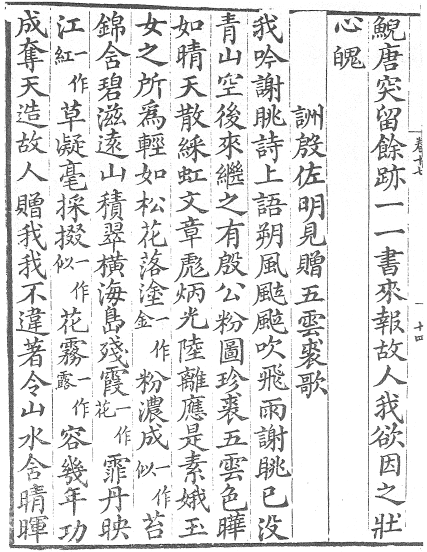 鯢唐突留餘跡一一書來報故人我欲因之壯
心魄
訓殷佐明見贈五雲裘歌
我吟謝朓詩上語朔風颼颼吹飛雨謝朓已没
青山空後來繼之有殷公粉圖珍裘五雲色曄
如晴天散綵虹文章彪炳光陸離應是素娥玉
女之所爲輕如松花落塗一作金粉濃成一作似苔
錦含碧滋遠山積翠橫海島殘霞一作花霏丹映
江一作紅草凝毫採掇一作似花霧一作露容幾年功
成奪天造故人贈我我不違著令山水含晴暉
卷第七
十四